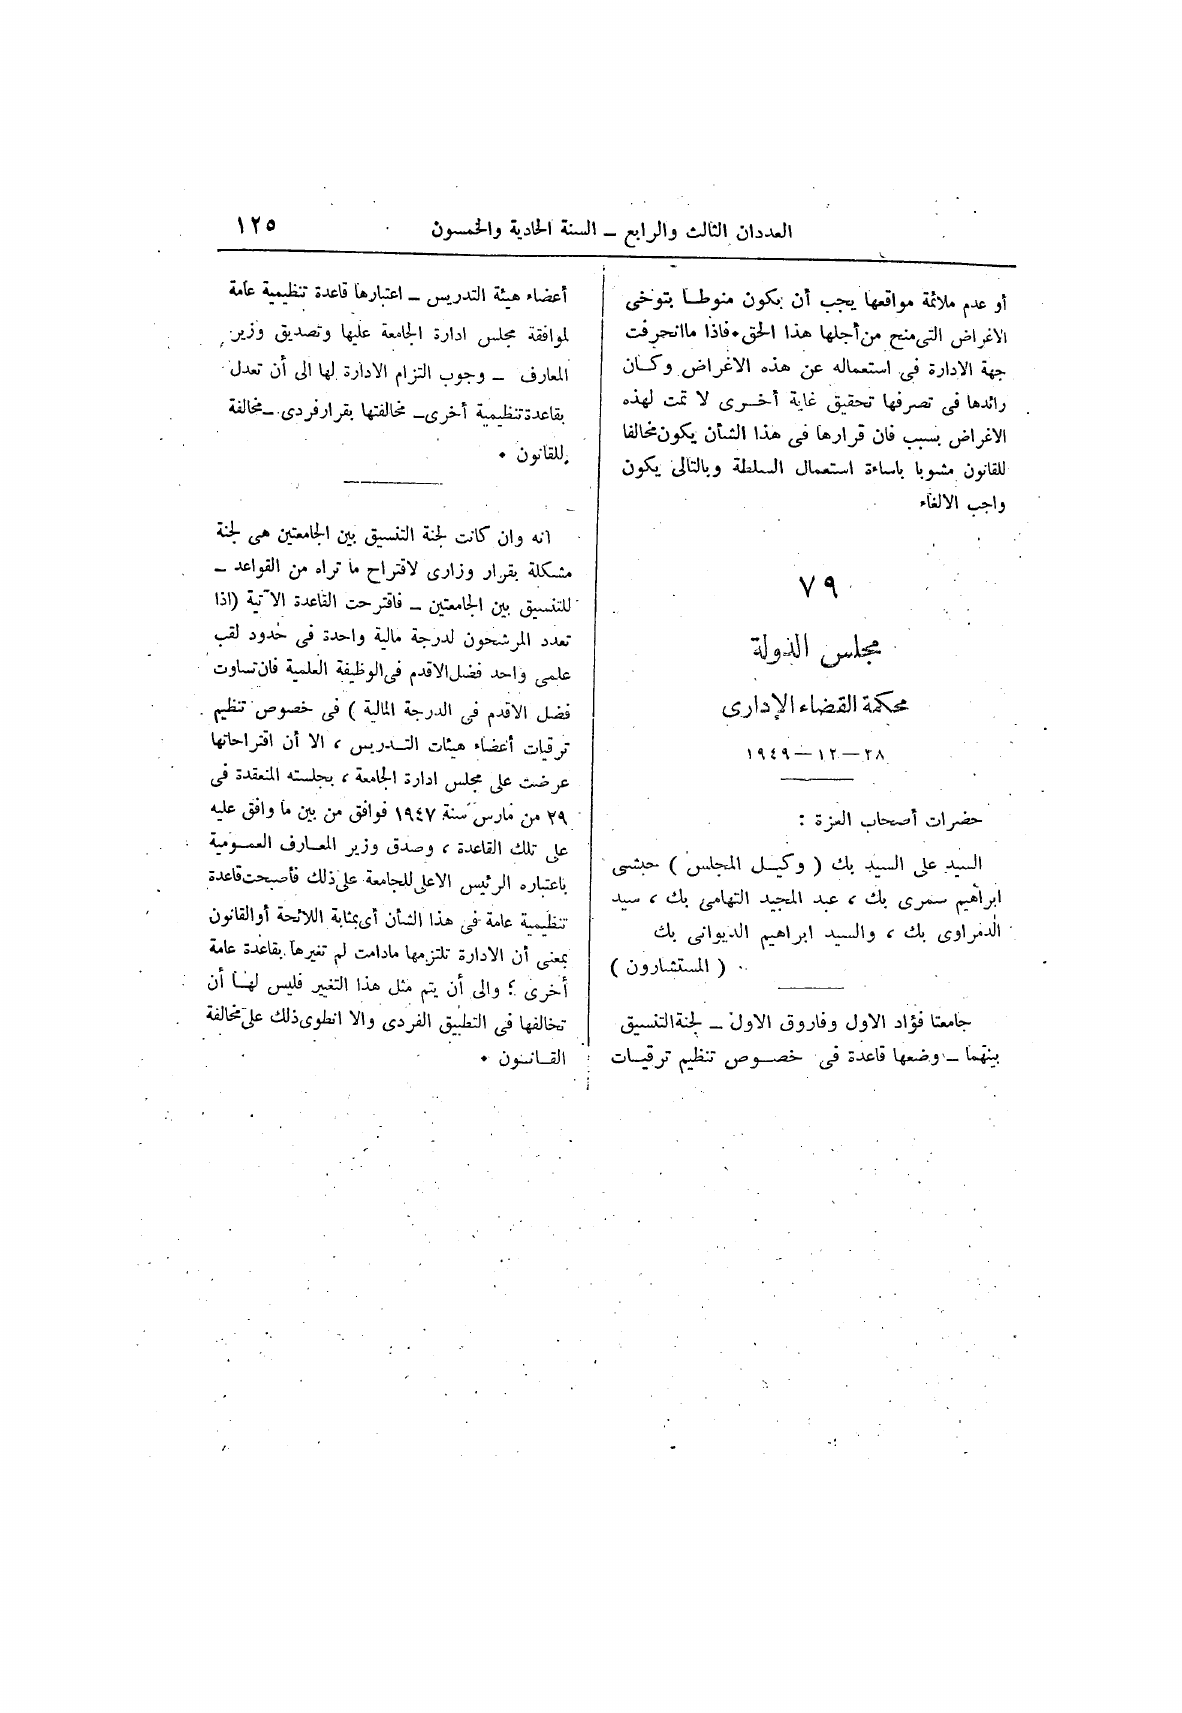 العددان الثالث والرابع ـ السنة الحادية والخمسون
١٢٥
أو عدم ملائمة مواقعها يجب أن يكون منوطا بتوخى
الاغراض التى منح من أجلها هذا الحق ٠ فاذا ما انحرفت
جهة الادارة فى استعماله عن هذه الاغراض وكان
رائدها فى تصرفها تحقيق غاية أخرى لا تمت لهذه
الاغراض بسبب فان قرارها فى هذا الشأن يكون مخالفا
للقانون مشوبا باساءة استعمال السلطة وبالتالى يكون
واجب الالغاء
٧٩
مجلس الدولة
محكمة القضاء الإدارى
٢٨ – ١٢ – ١٩٤٩
حضرات أصحاب العزة :
السيد على السيد بك ( وكيل المجلس ) حبشى
ابراهيم سمرى بك ، عبد المجيد التهامى بك ، سيد
الدمراوى بك ، والسيد ابراهيم الديوانى بك
( المستشارون )
جامعتا فؤاد الاول وفاروق الاول ـ لجنة التنسيق
بينهما ـ وضعها قاعدة فى خصوص تنظيم ترقيات
أعضاء هيئة التدريس ـ اعتبارها قاعدة تنظيمية عامة
لموافقة مجلس ادارة الجامعة عليها وتصديق وزير
المعارف ـ وجوب التزام الادارة لها الى أن تعدل
بقاعدة تنظيمية أخرى ـ مخالفتها بقرار فردى ـ مخالفة
للقانون ٠
انه وان كانت لجنة التنسيق بين الجامعتين هى لجنة
مشكلة بقرار وزارى لاقتراح ما تراه من القواعد ـ
للتنسيق بين الجامعتين ـ فاقترحت القاعدة الآتية (اذا
تعدد المرشحون لدرجة مالية واحدة فى حدود لقب
علمى واحد فضل الاقدم فى الوظيفة العلمية فان تساوت
فضل الاقدم فى الدرجة المالية ) فى خصوص تنظيم
ترقيات أعضاء هيئات التدريس ، الا أن اقتراحاتها
عرضت على مجلس ادارة الجامعة ، بجلسته المنعقدة فى
٢٩ من مارس سنة ١٩٤٧ فوافق من بين ما وافق عليه
على تلك القاعدة ، وصدق وزير المعارف العمومية
باعتباره الرئيس الاعلى للجامعة على ذلك فأصبحت قاعدة
تنظيمية عامة فى هذا الشأن أى بمثابة اللائحة أو القانون
بمعنى أن الادارة تلتزمها مادامت لم تغيرها بقاعدة عامة
أخرى ؛ والى أن يتم مثل هذا التغيير فليس لها أن
تخالفها فى التطبيق الفردى والا انطوى ذلك على مخالفة
القانون ٠